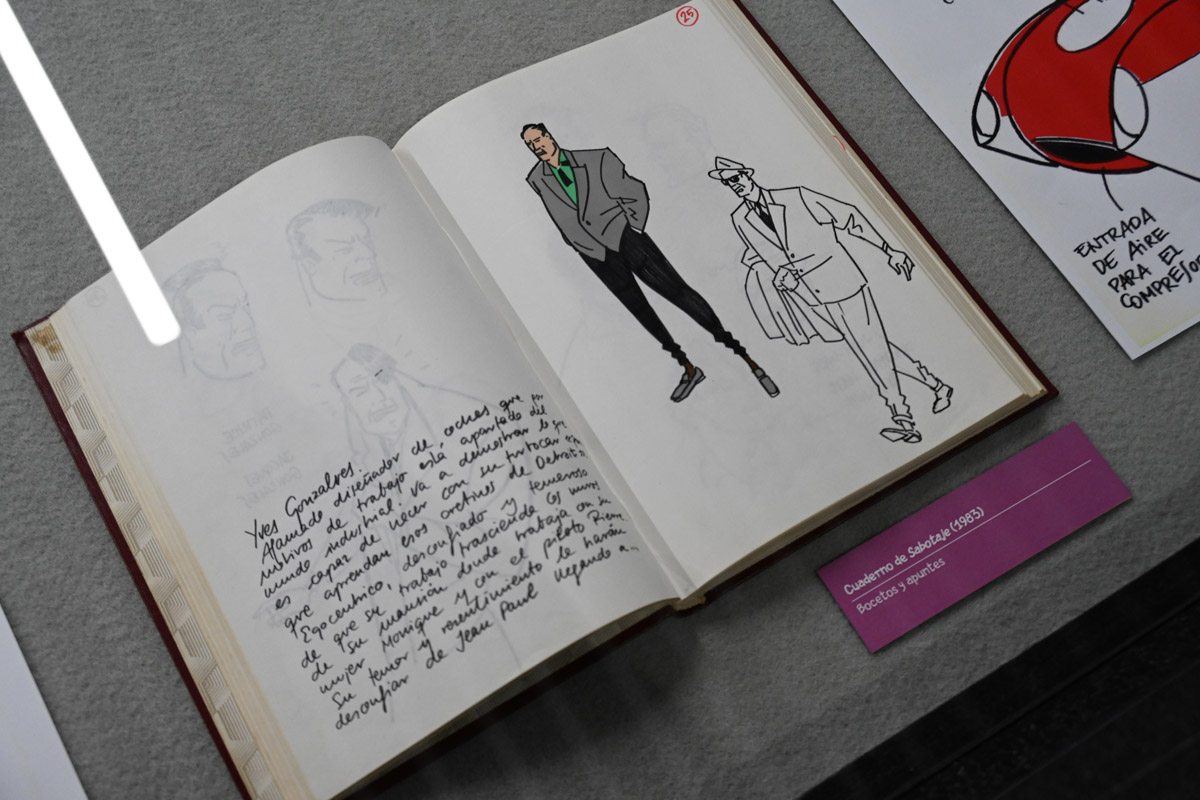 25
Yves Gonzalves.
Afamado diseñador de coches que por
motivos de trabajo está apartado del
mundo industrial. Va a demostrar lo que
es capaz de hacer con su turbocar
que aprendan esos cretinos de Detroit
Egocentrico, desconfiado y temeroso
de que su trabajo trascienda los muros
de su mansión donde trabaja con su
mujer Monique y con el piloto Riem
Su temor y resentimiento le harán
desconfiar de Jean Paul llegando a...
ENTRADA
DE AiRE
PARA EL
COMPRESOR
Cuaderno de Sabotaje (1983)
Bocetos y apuntes